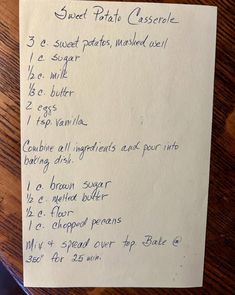 Sweet Potato Casserole
3 c. sweet potatos, mashed well
1 c. sugar
1/2 c. milk
1/3 c. butter
2 eggs
1 tsp. vanilla
Combine all ingredients and pour into
baking dish.
1 c. brown sugar
1/2 c. melted butter
1/2 c. flour
1 c. chopped pecans
Mix & spread over top. Bake @
350° for 25 min.